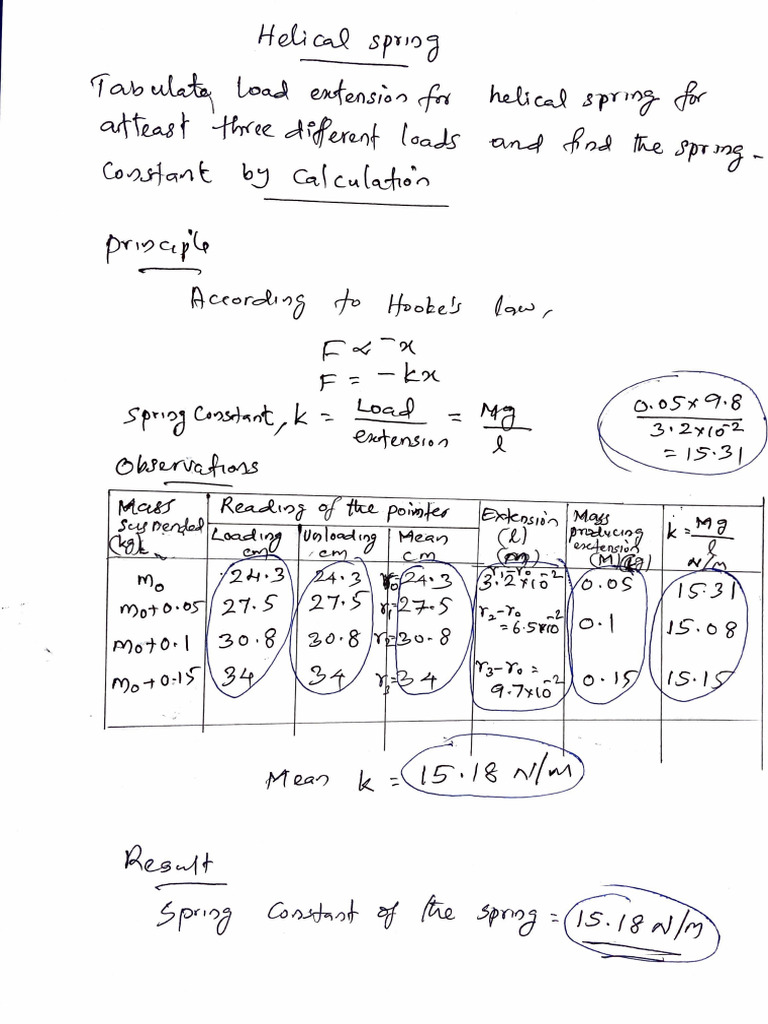 Helical spring
Tabulate load extension for helical spring for
atleast three different loads and find the spring
constant by calculation
principle
According to Hooke's law,
F ∝ -x
F = -kx
Spring constant, k = Load / extension = Mg / l
0.05 × 9.8 / 3.2×10⁻² = 15.31
Observations
Mass suspended (kg) | Reading of the pointer | Extension (l) (m) | Mass producing extension (M) (kg) | k = Mg / l N/m
Loading cm | Unloading cm | Mean cm
m₀ | 24.3 | 24.3 | r₀=24.3 | r₁-r₀ 3.2×10⁻² | 0.05 | 15.31
m₀+0.05 | 27.5 | 27.5 | r₁=27.5 | r₂-r₀ =6.5×10⁻² | 0.1 | 15.08
m₀+0.1 | 30.8 | 30.8 | r₂=30.8
m₀+0.15 | 34 | 34 | r₃=34 | r₃-r₀ = 9.7×10⁻² | 0.15 | 15.15
Mean k = 15.18 N/m
Result
Spring constant of the spring = 15.18 N/m